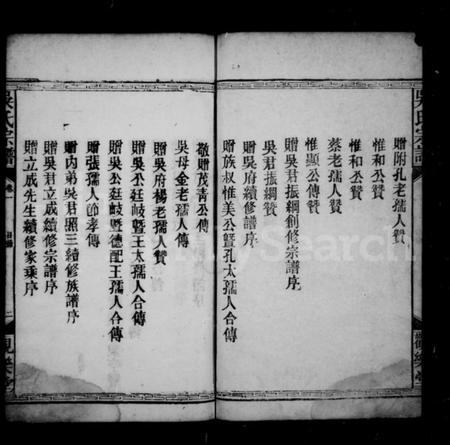 贈附孔老孺人贊
惟和公贊
惟和公贊
蔡老孺人贊
惟顯公傳贊
贈吳君振綱創修宗譜序
吳君振綱贊
贈吳府續修譜序
贈族叔惟美公暨孔太孺人合傳
敬贈茂靑公傳
吳母金老孺人傳
贈吳府楊老孺人贊
贈吳公廷岐暨王太孺人合傳
贈吳公廷岐暨德配王孺人合傳
贈張孺人節孝傳
贈內弟吳君照三續修族譜序
贈吳君立成續修宗譜序
贈立成先生續修家乘序
吳氏宗譜
卷一
吳氏宗譜
FamilySearch